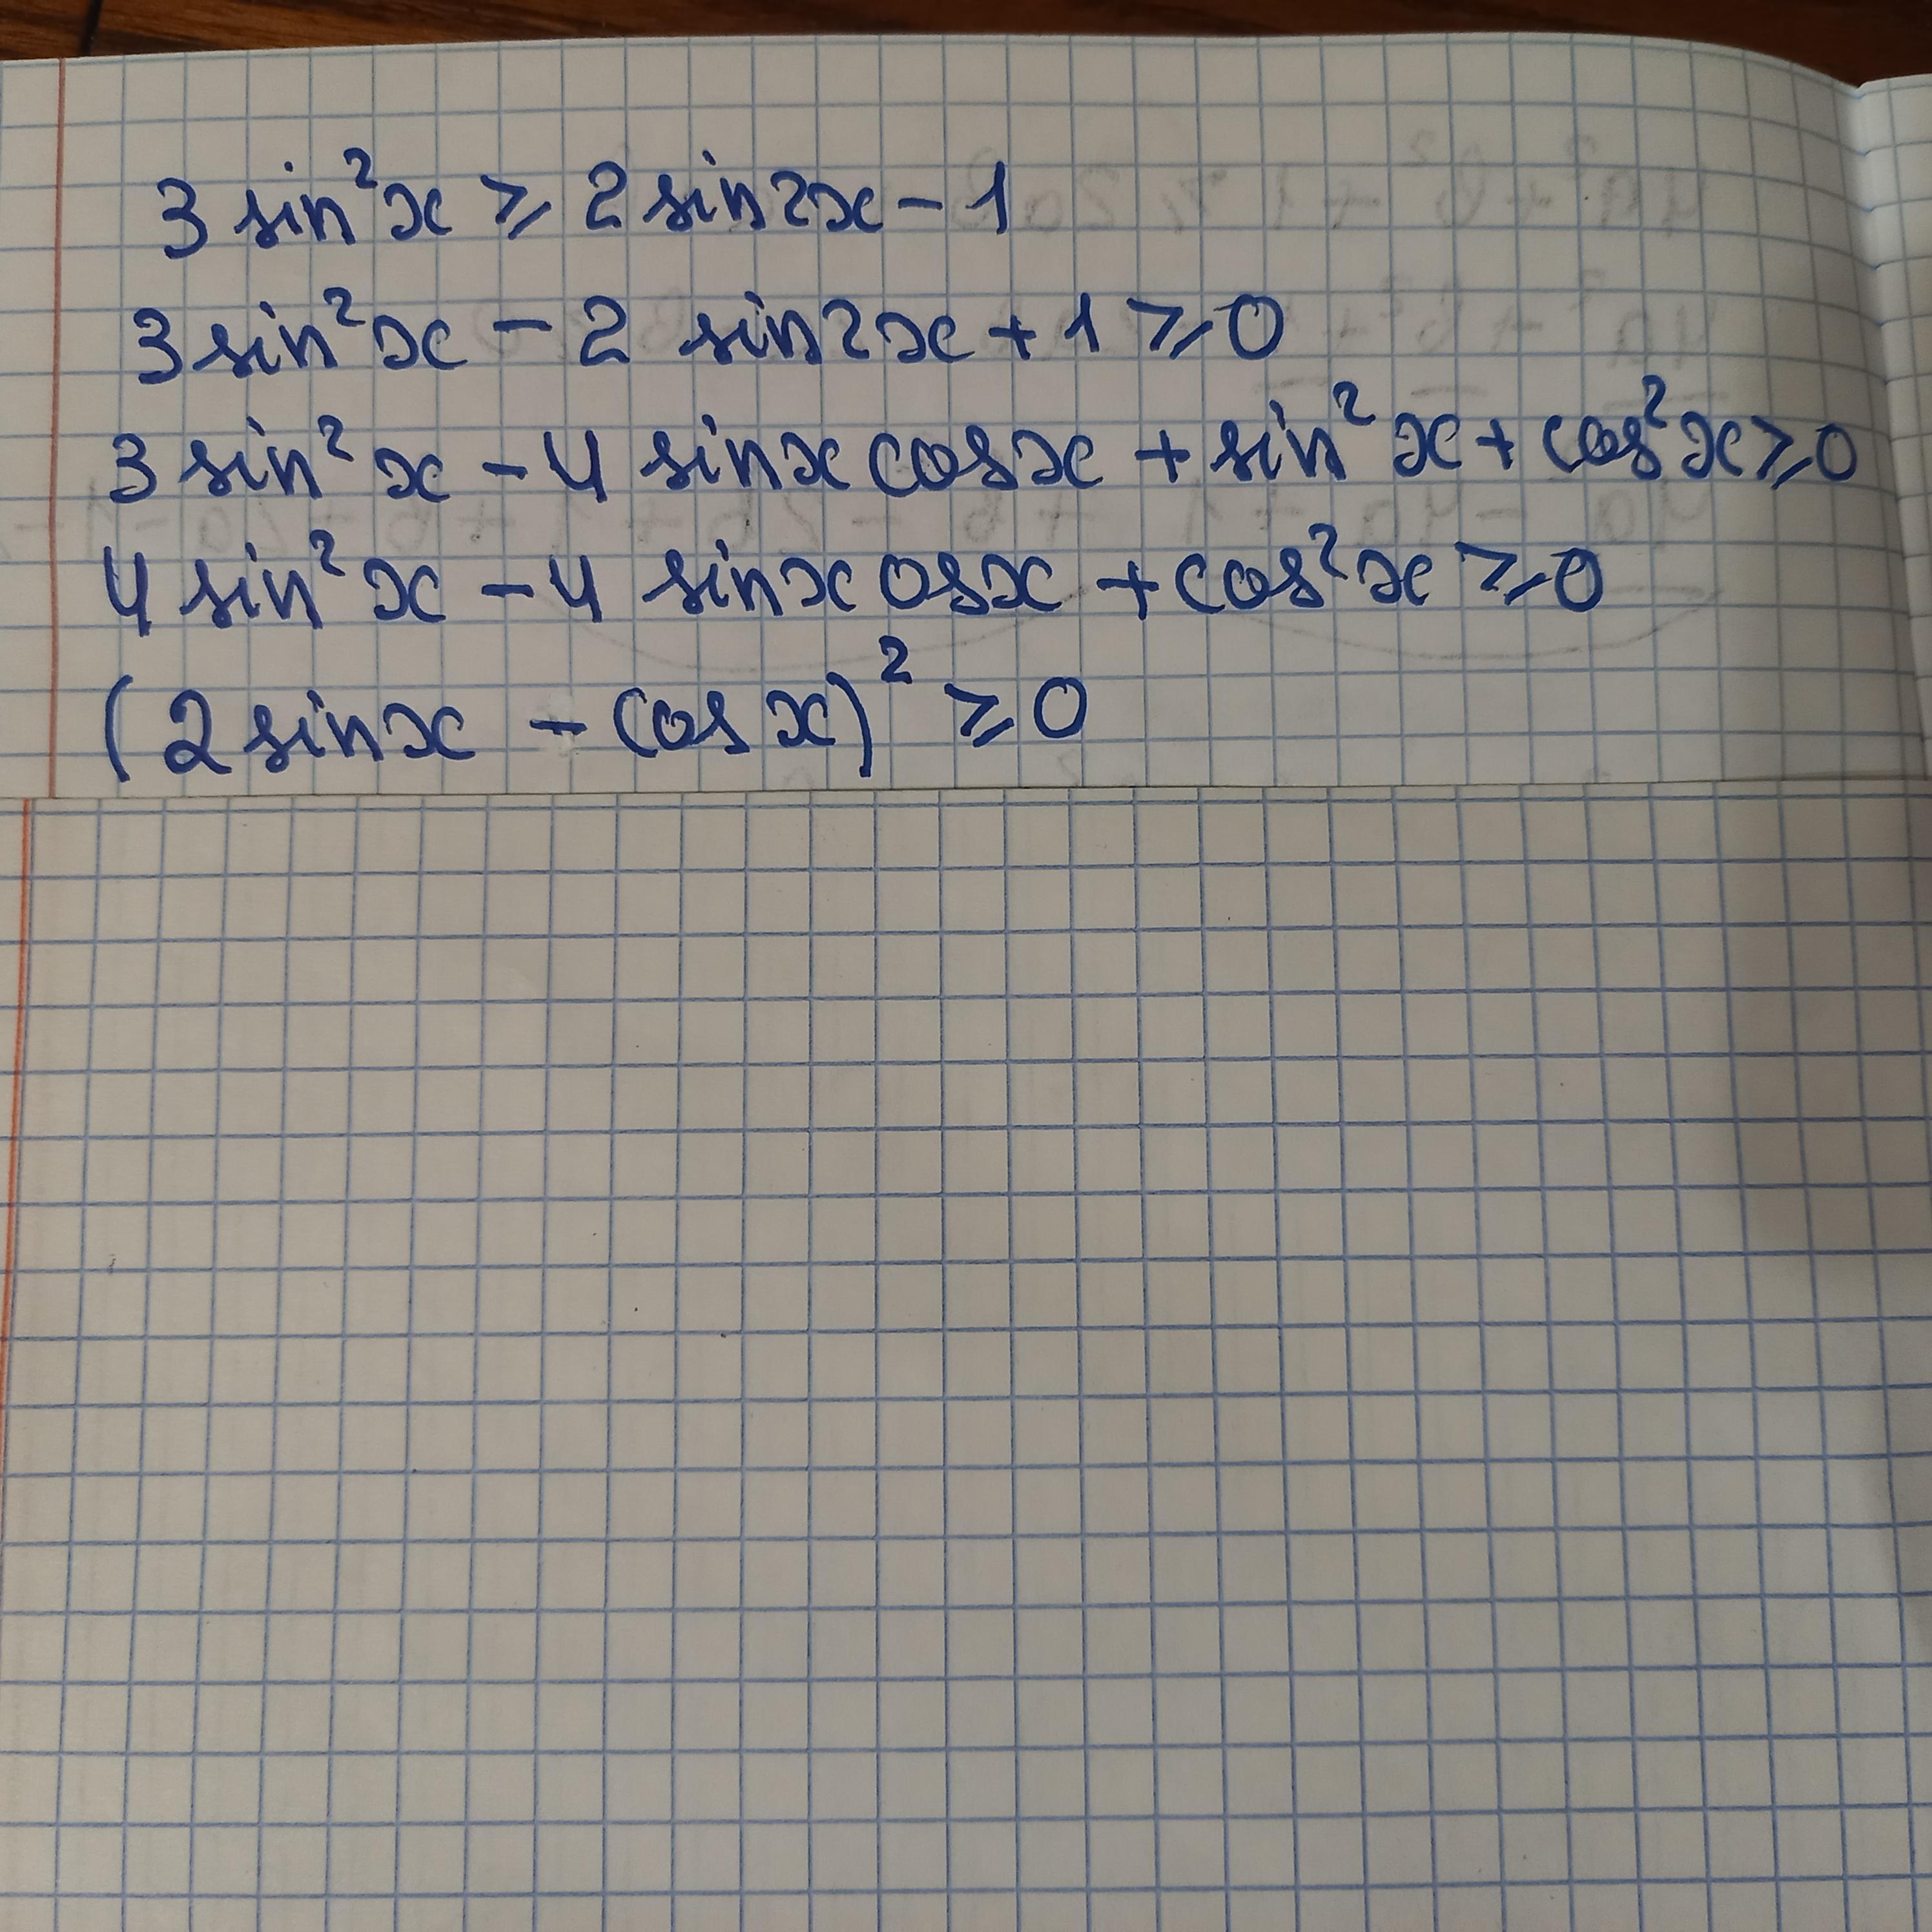 3 sin²x ⩾ 2 sin2x - 1
3 sin²x - 2 sin2x + 1 ⩾ 0
3 sin²x - 4 sinx cosx + sin²x + cos²x ⩾ 0
4 sin²x - 4 sinx osx + cos²x ⩾ 0
(2 sinx - cosx)² ⩾ 0